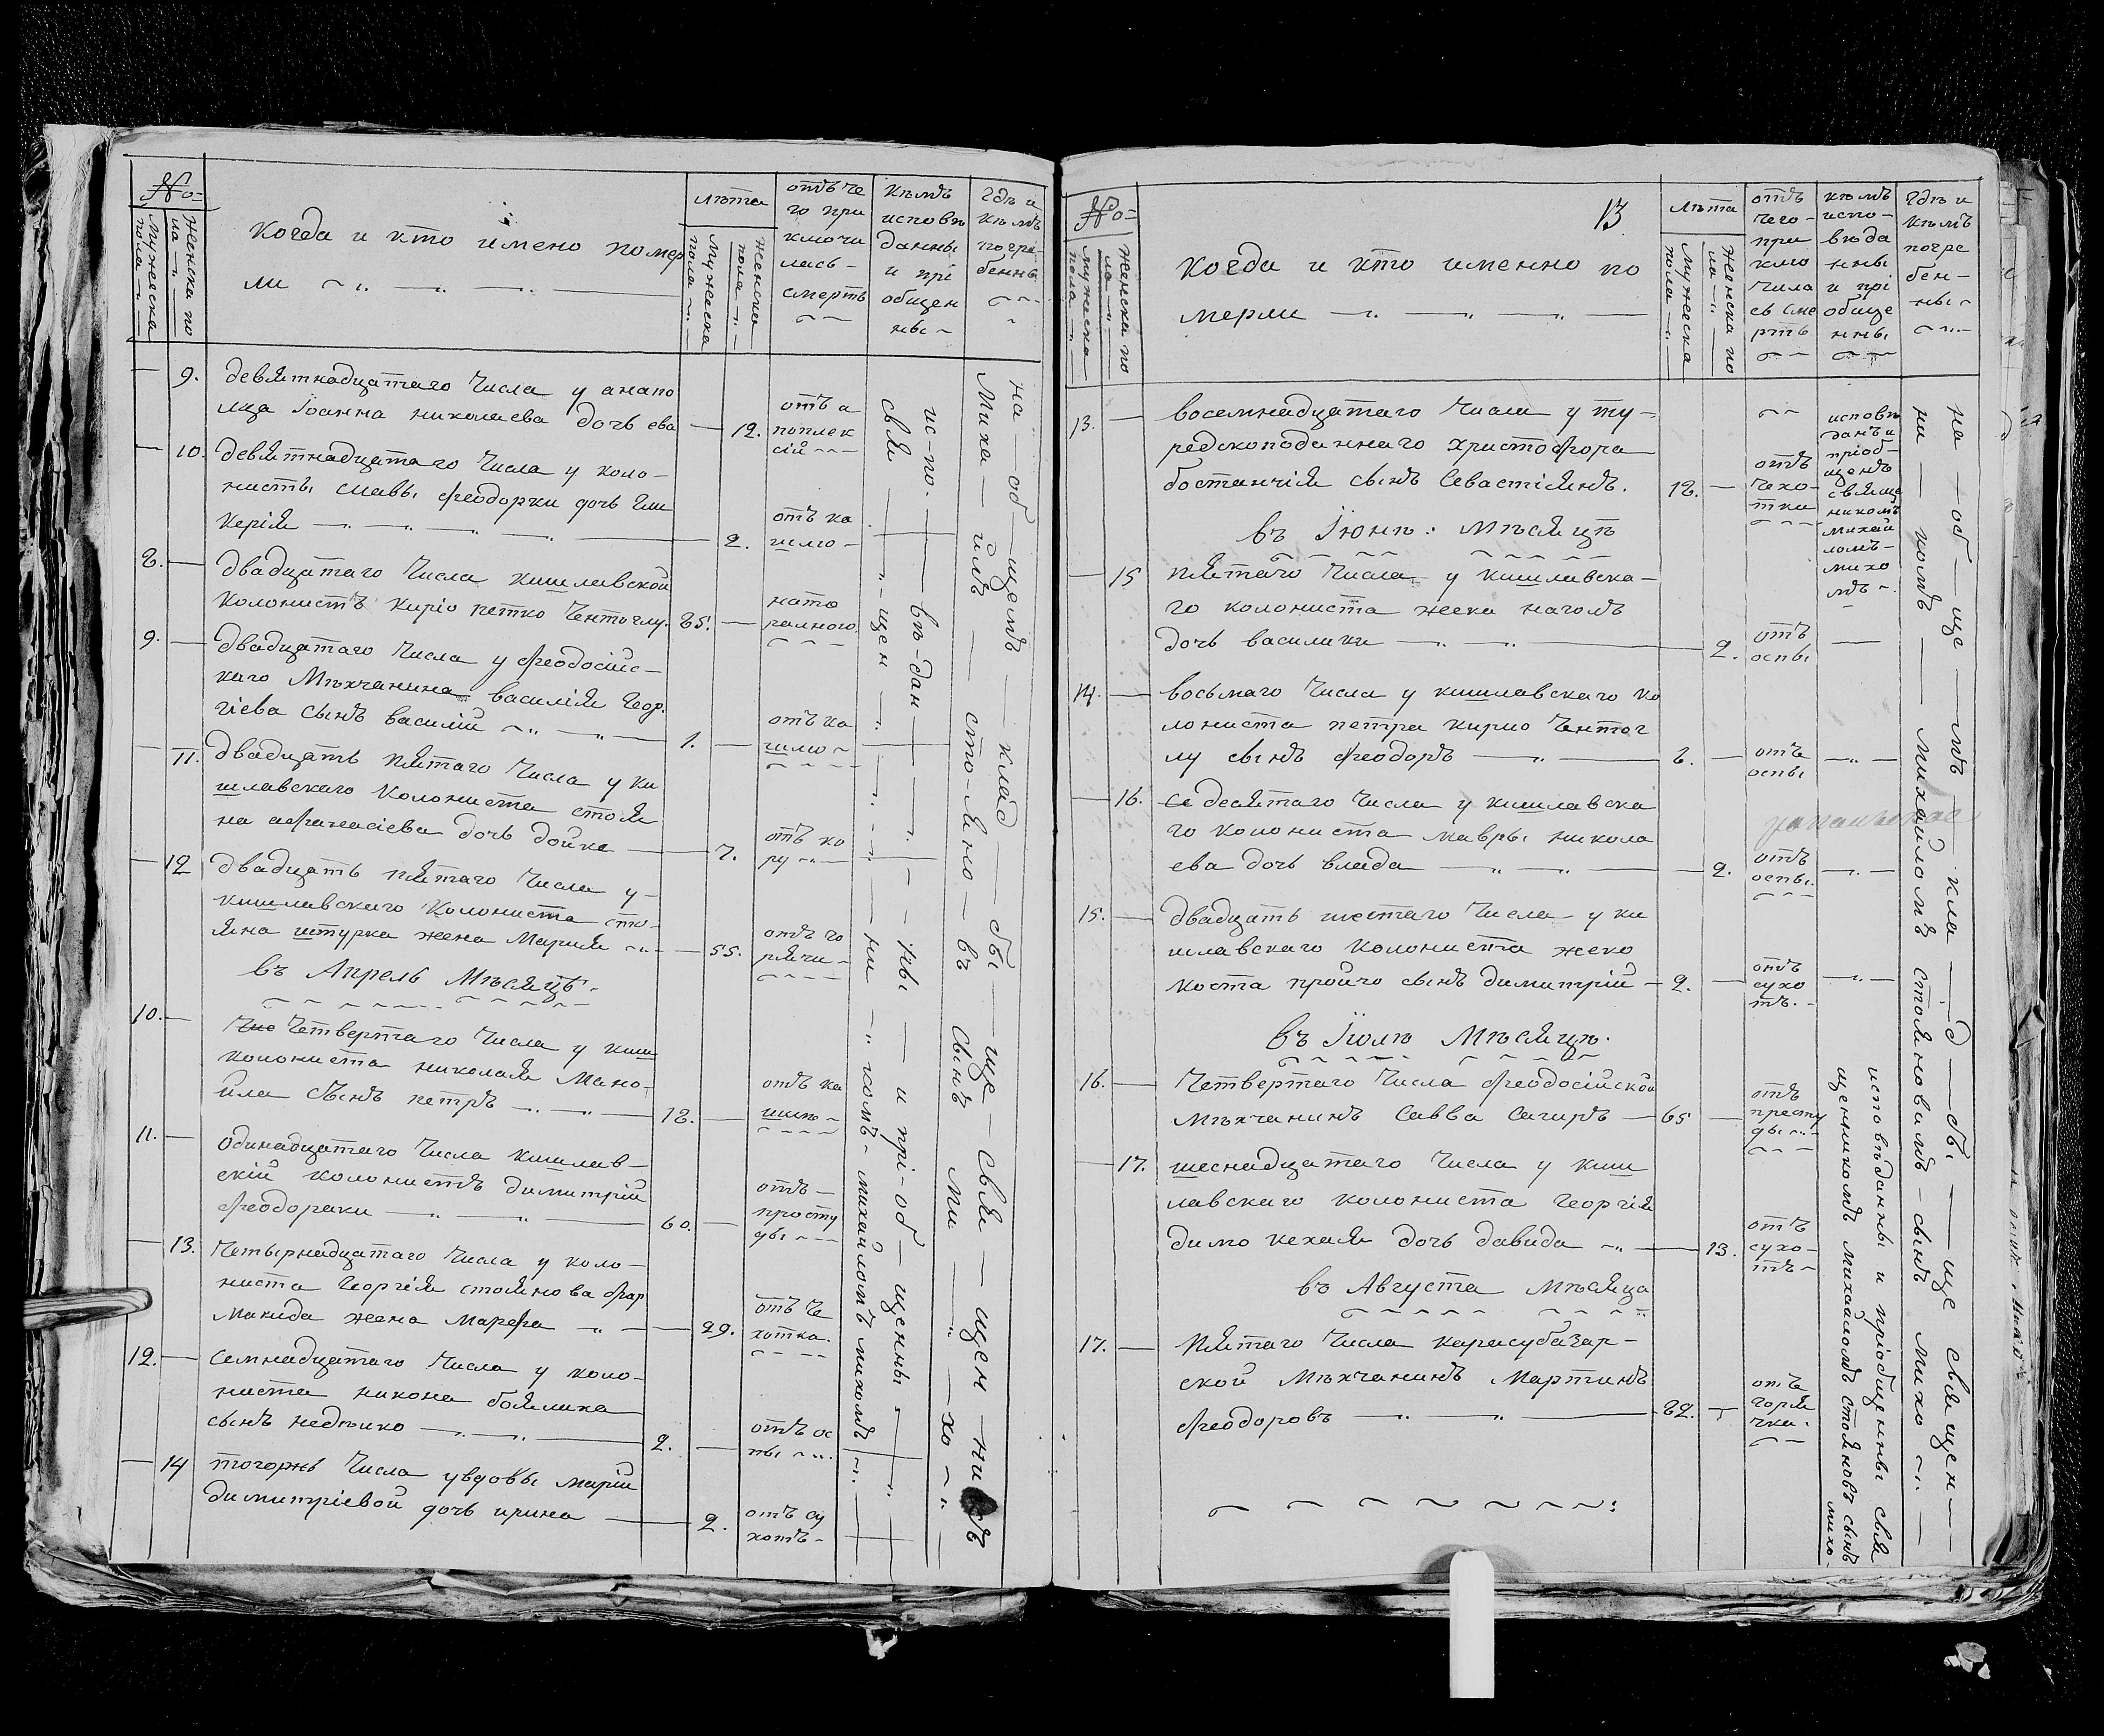 №
Мужеска пола
Женска пола
Когда и кто имено помер
ли
лѣта
Мужеска пола
женска пола
отъ че
го при
ключи
лась
смерть
кѣмъ
исповѣ
данны
и прі
общен
ны
Гдѣ и
кѣмъ
погре
бенны
9. девятнадцатаго Числа у анапо
лца Іоанна николаева дочь ева 12. отъ а
поплек
сіи
10. девятнадцатаго Числа у коло-
нисты славы феодорки дочь гли
керія 2. отъ ка
шлю
8. двадцатаго Числа кишлавской
колонистъ киріо петко Чентоглу. 85. нато
ралного
9. двадцатаго Числа у феодосійс-
каго Мѣхчанина василія Геор.
гіева сынъ василій 1. отъ ка
шлю
11. двадцать пятаго Числа у ки
шлавскаго Колониста стоя
на афанасіева дочь дойка 7. отъ ко
ру
12 двадцать пятаго Числа у
кишлавскаго Колониста сто-
яна штурка жена Марія 55. отъ го
рячи
въ Апрель Мѣсяцъ.
10. Четвертаго Числа у киш
колониста николая Мано-
ила сынъ петръ 12. отъ ка
шлю
11. одинадцатаго Числа кишлав-
скій колонистъ димитрій
феодораки 60. отъ
просту
ды
13. Четырнадцатаго Числа у коло-
ниста Георгія стоянова фар
макида жена Марфа 29. отъ че
хотка.
12. семнадцатаго Числа у коло-
ниста никона боялика
сынъ недѣлко 2. отъ ос
пы
14 тогожъ Числа увдовы маріи
димитріевой дочь ирина 2. отъ су
хотъ
ис-по-вѣ-дан-ны и прі-об-щенны
свя-щен-ни-комъ михаиломъ михомъ
на-об-щемъ клад-бы-ще-свя-щен-никъ
Миха-илъ сто-яно-въ сынъ ми-хо
13
№
Мужеска пола
Женска пола
Когда и кто именно по
мерли
лѣта
Мужеска пола
Женска пола
отъ
чего
при
клю
чила
сь сме
рть
кѣмъ
испо-
вѣда
нны
и прі
обще
нны
Гдѣ и
кѣмъ
погре
бен-
ны
13. восемнадцатаго Числа у ту-
редскоподаннаго христофора
бостанчія сынъ Севастіянъ. 12. отъ
чехо-
тки
исповѣ
данъ и
пріоб-
щенъ
свяще
никомъ
михаи
ломъ
михо
мъ
въ Іюнѣ: Мѣсяцъ
15 пятаго Числа у кишлавска-
го колониста жека нагомъ
дочь василики 2. отъ
оспы
14. восьмаго Числа у кишлавскаго ко
лониста петра кирио Чентог
лу сынъ феодоръ 2. отъ
оспы
16. десятаго Числа у кишлавска
го колониста мавры никола
ева дочь влада 2. отъ
оспы.
15. двадцать шестаго Числа у ки
шлавскаго колониста жеко
коста пройчо сынъ димитрій 2. отъ
сухо
тъ.
въ Іюлѣ Мѣсяцѣ.
16. Четвертаго Числа феодосійской
Мѣхчанинъ Савва Сагиръ 65 отъ
просту
ды
17. шеснадцатаго Числа у киш
лавскаго колониста Георгія
димо кехая дочь давида 13. отъ
сухо-
тъ
въ Августа Мѣсяца
17. пятаго Числа карасубазар-
ской Мѣхчанинъ Мартинъ
феодоровъ 82. отъ
горя
чка.
исповѣданны и пріобщенны свя
щенникомъ михайломъ стояновъ сынъ михо
на-об-ще-мъ кла-д-бы-ще священ-
ни-комъ михайломъ стояновимъ сынъ михо